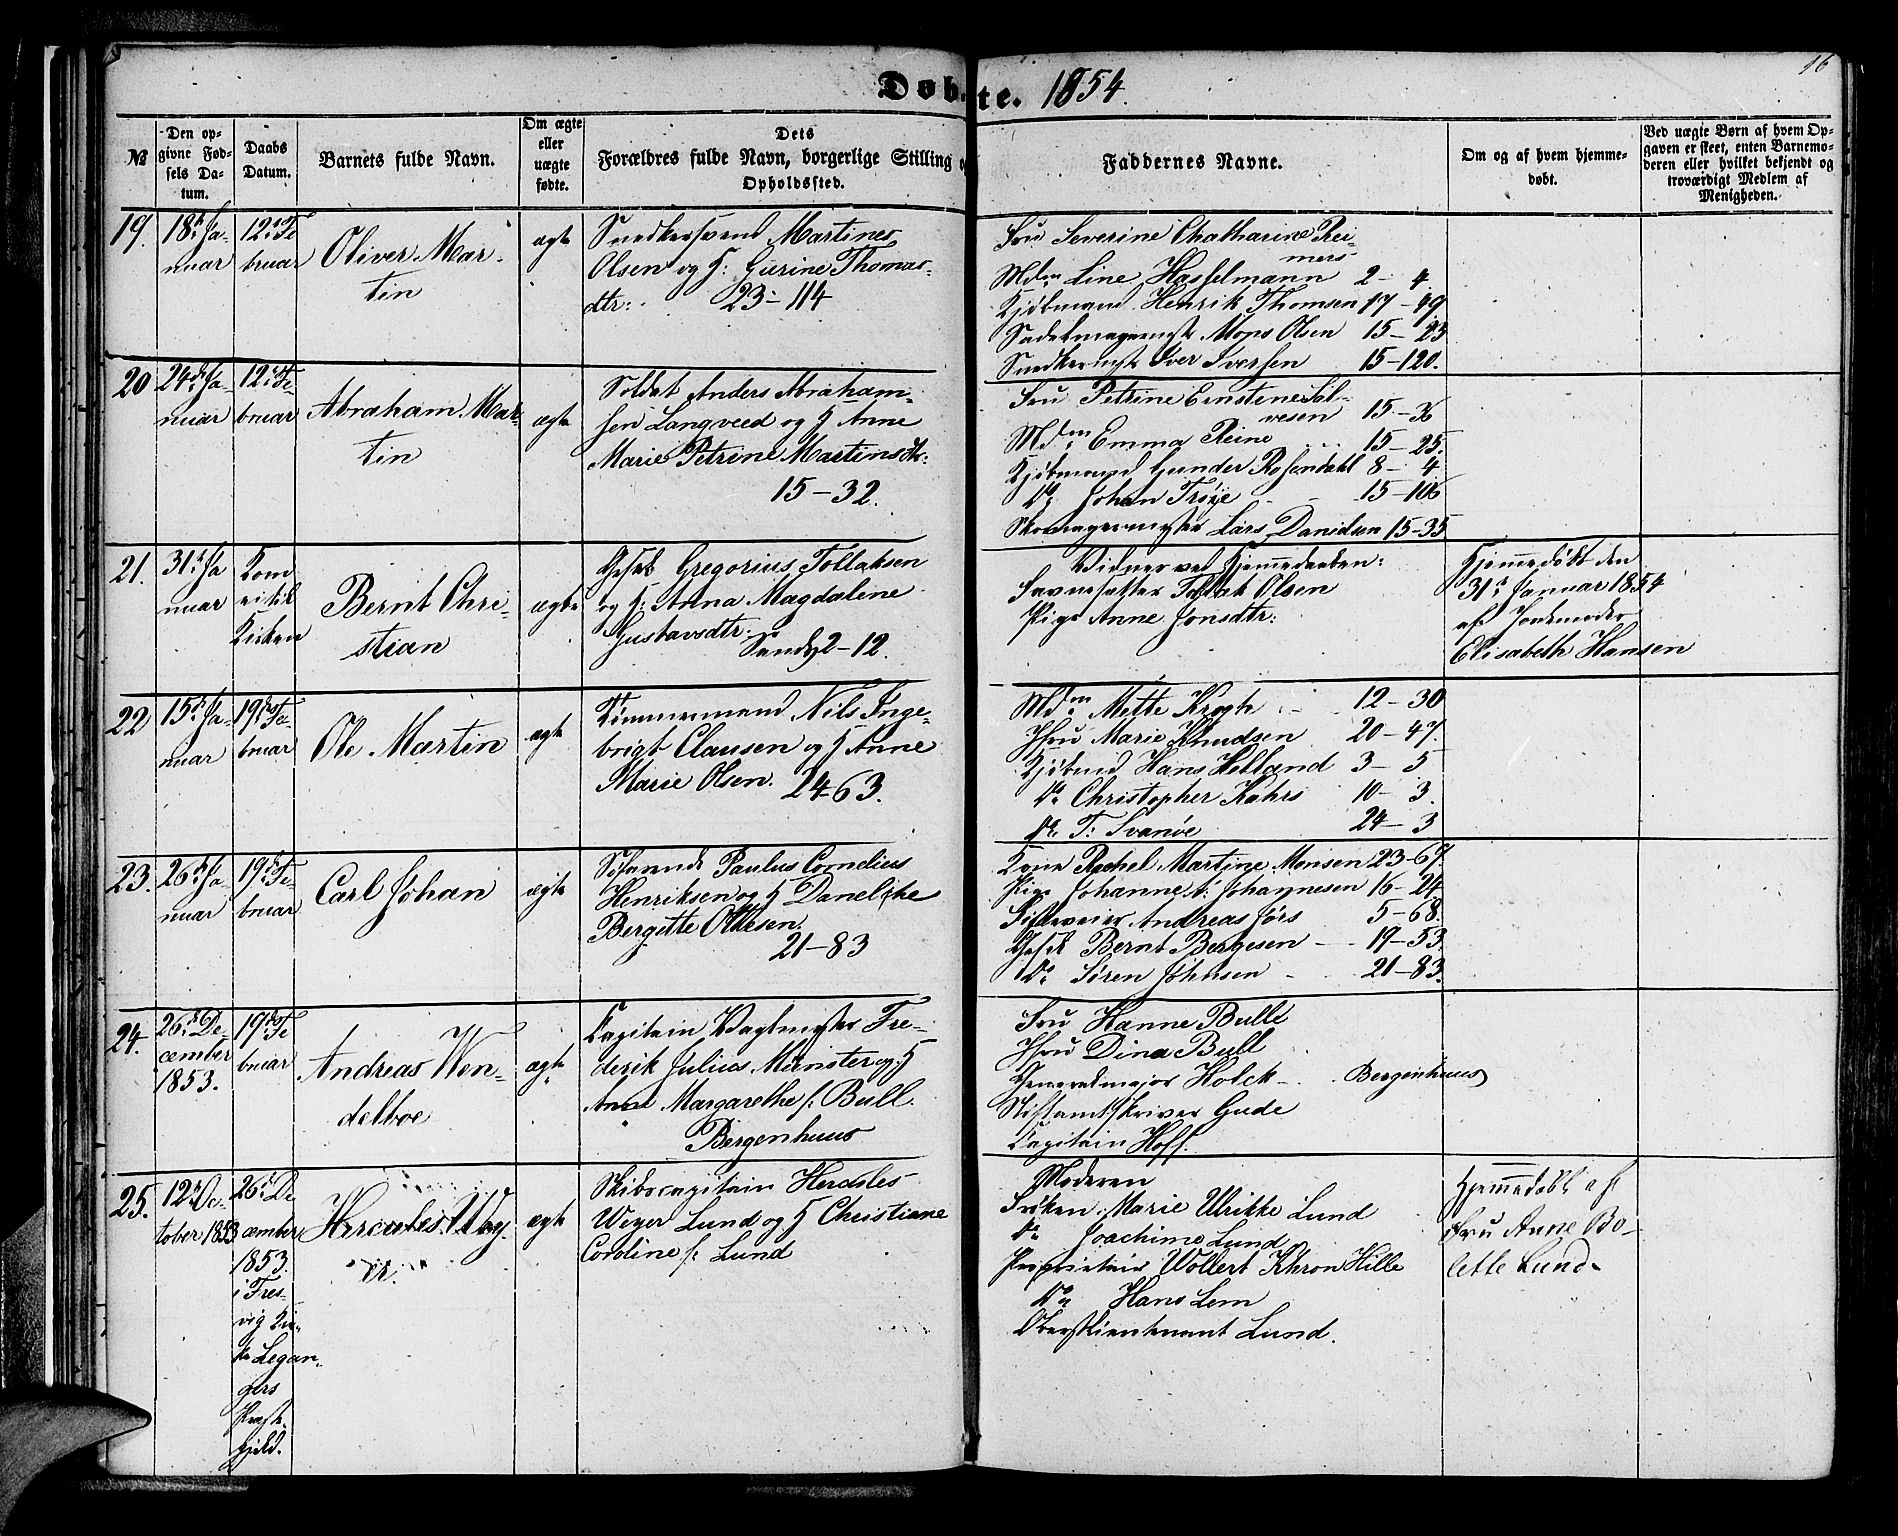 16
Døbte. 1854.
№
Den op-
givne Fød-
sels Da-
tum.
Daabs
Datum.
Barnets fulde Navn.
Om ægte
eller
uægte
fødte.
Dets
Forældres fulde Navn, borgerlige Stilling o
Opholdssted.
Faddernes Navne.
Om og af hvem hjemme-
døbt.
Ved uægte Børn af hvem Op-
gaven er skeet, enten Barnemo-
deren eller hvilket bekjendt og
troværdigt Medlem af
Menigheden.
19.
18de Ja-
nuar
12te Fe
bruar
Oliver Mar-
tin
ægte
Snedkersvend Martines
Olsen og H: Gurine Thomas-
dtr: 23-114
Fru Severine Chatharine Rei-
mers
Mdm Line Hasselmann 2-4
Kjøbmand Henrik Thomsen 17-49
Sadelmagermstr Mons Olsen 15-23
Snedkermstr Iver Iversen 15-120.
20
24de Ja-
nuar
12te Fe
bruar
Abraham Mar-
tin
ægte
Soldat Anders Abraham-
sen Langveed og H Anne
Marie Petrine Martinsdtr:
15-32.
Fru Petrine Ernstene Sol-
vesen 15-36
Mdm Emma Reine 15-25.
Kjøbmand Gunder Rosendahl 8-4
Do Johan Trøye 15-106
Skomagermester Lars Danielsen 15-35
21.
31te Ja
nuar
Kom
ei til
Kirken
Bernt Chri-
stian
ægte
Gesel Gregorius Tollaksen
og H: Anna Magdalene
Gustavsdtr. Sandv 2-12.
Vidner ved Hjemmedaaben:
Favnesætter Tollak Olsen
Pige Anne Jonsdtr:
Hjemmedøbt den
31te Januar 1854
af Jordemoder
Elisabeth Hansen
22
15de Ja-
nuar
19de Fe-
bruar
Ole Martin
ægte
Tømmermand Nils Inge-
brigt Clausen og H Anne
Marie Olsen. 24-63.
Mdm Mette Krogh 12-30
Jfru Marie Knudsen 20-47
Kjøbmd Hans Holland 3-5
Do Christopher Kahrs 10-3.
Do T: Svanøe 24-3
23.
26de Ja-
nuar
19de Fe-
bruar
Carl Johan
ægte
Søemand Paulus Cornelius
Henriksen og H Danelcke
Bergitte Olthesen.
21-83
Kone Rachel Martine Monsen 23-67.
Pige Johanne Johannesen 16-24
Andreas Jørs 5-68.
Gesel Bernt Børgesen 19-53
Do Søren Johnsen 21-83.
24.
26de De-
cember
1853.
19de Fe
bruar
Andreas Wen-
delboe
ægte
Capitain Vagtmester Fre-
derik Julius Münster og H
Anne Margarethe f: Bull.
Bergenhuus
Fru Hanne Bull
Jfru Dina Bull
Generalmajor Holck Bergenhuus
Stiftamtskriver Gude
Capitain Hoff.
25.
12te Oc-
tober 1853
26de De
cember
1853.
i Fres-
vig Kir-
ke Legan-
gers
Præste-
gjeld.
Hercules Wey-
er.
ægte
Skibscapitain Hercules
Weyer Lund og H Christiane
Caroline f. Lund
Moderen
Frøken Marie Ulrikke Lund
Do Joachime Lund
Proprietair Wollert Khron Hille
Do Hans Lem
Oberstlieutenant Lund.
Hjemmedøbt af
Fru Anne Bo-
lette Lund